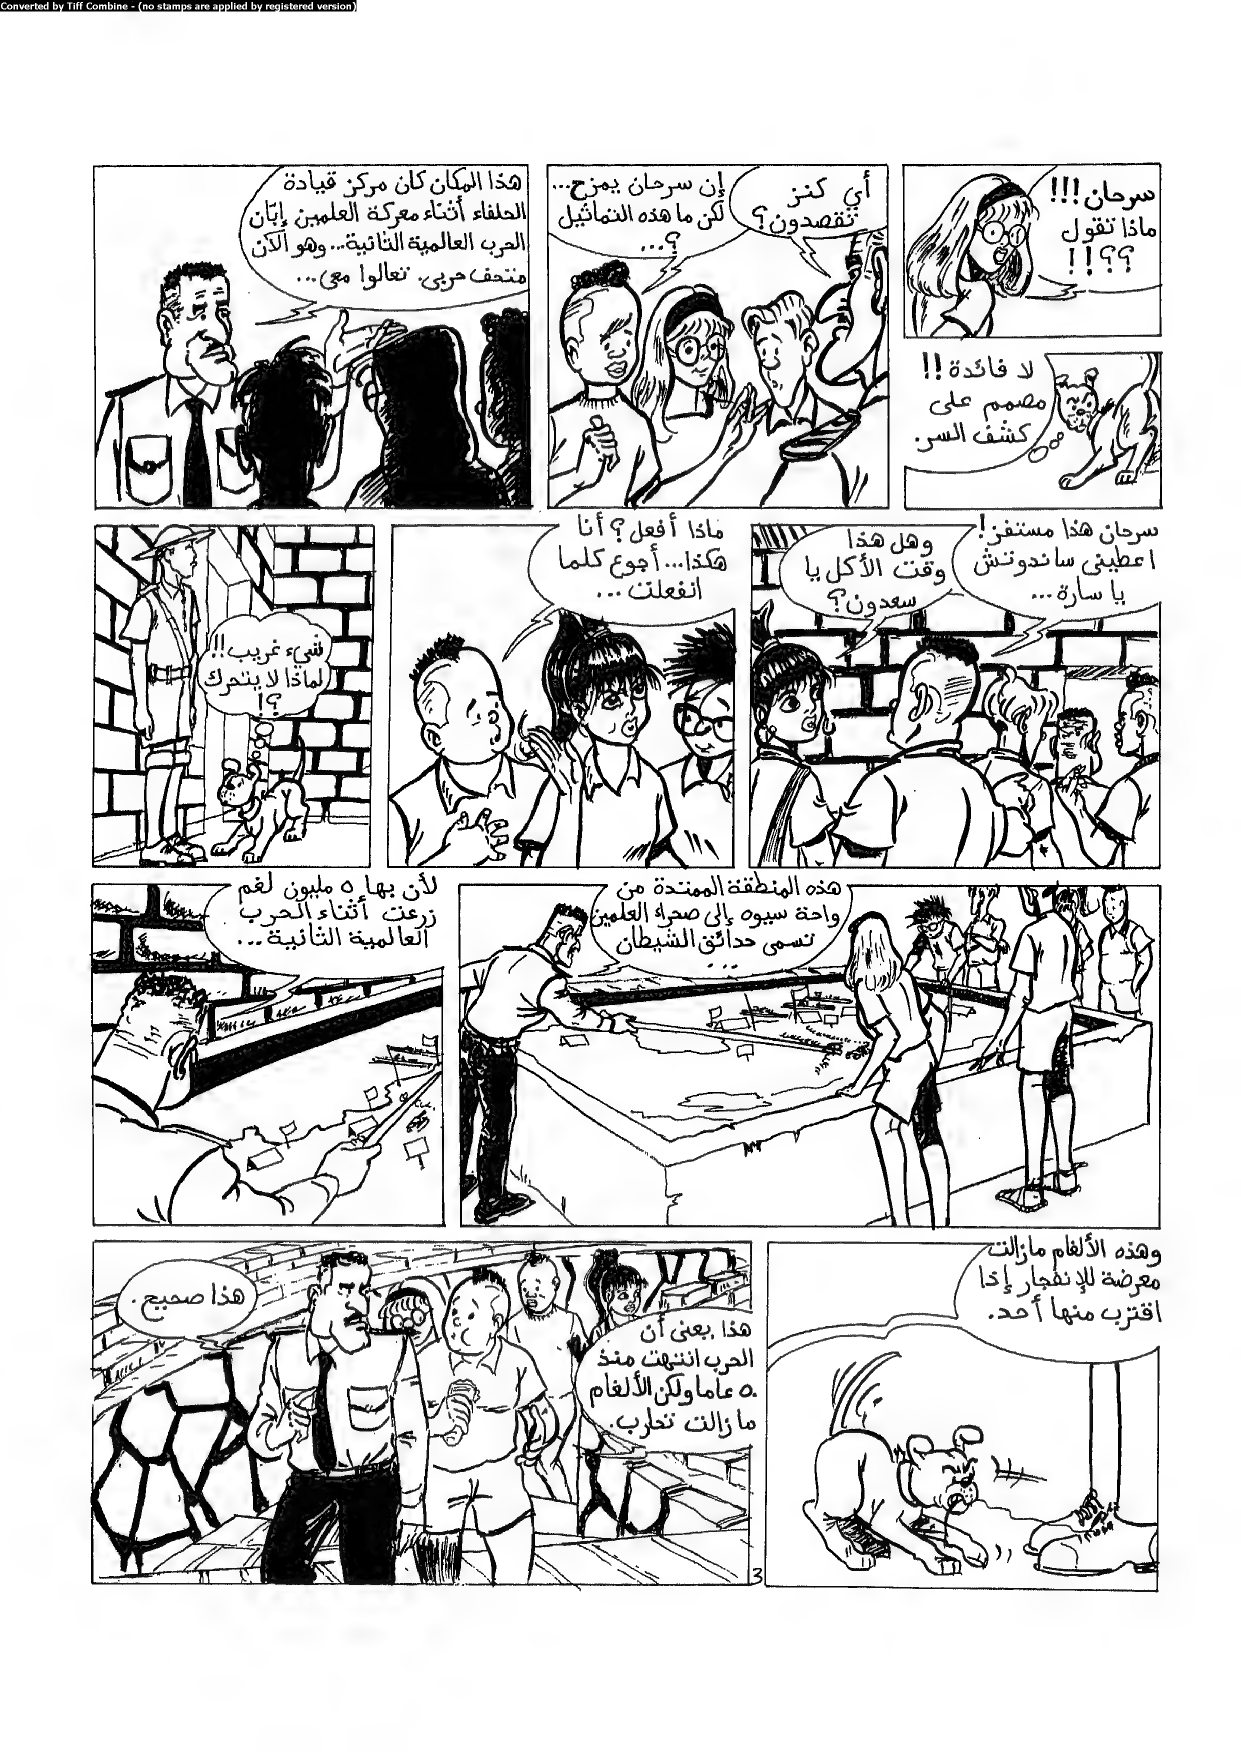 Converted by Tiff Combine - (no stamps are applied by registered version)
سرحان!!!
ماذا تقول
؟؟!!
لا فائدة!!
مصمم على
كشف السر.
أي كنز
تقصدون؟
إن سرحان يمزح...
لكن ما هذه التماثيل
؟...
هذا المكان كان مركز قيادة
الحلفاء أثناء معركة العلمين إبّان
الحرب العالمية الثانية... وهو الآن
متحف حربى. تعالوا معى...
سرحان هذا مستفز!
اعطينى ساندوتش
يا سارة...
وهل هذا
وقت الأكل يا
سعدون؟
ماذا أفعل؟ أنا
هكذا... أجوع كلما
انفعلت...
شيء غريب!!
لماذا لا يتحرك
؟!
هذه المنطقة الممتدة من
واحة سيوه إلى صحراء العلمين
تسمى حدائق الشيطان
...
لأن بها ٥ مليون لغم
زرعت أثناء الحرب
العالمية الثانية...
وهذه الألغام مازالت
معرضة للإنفجار إذا
اقترب منها أحد.
هذا يعنى أن
الحرب انتهت منذ
٥٠ عاما ولكن الألغام
مازالت تحارب.
هذا صحيح.
3